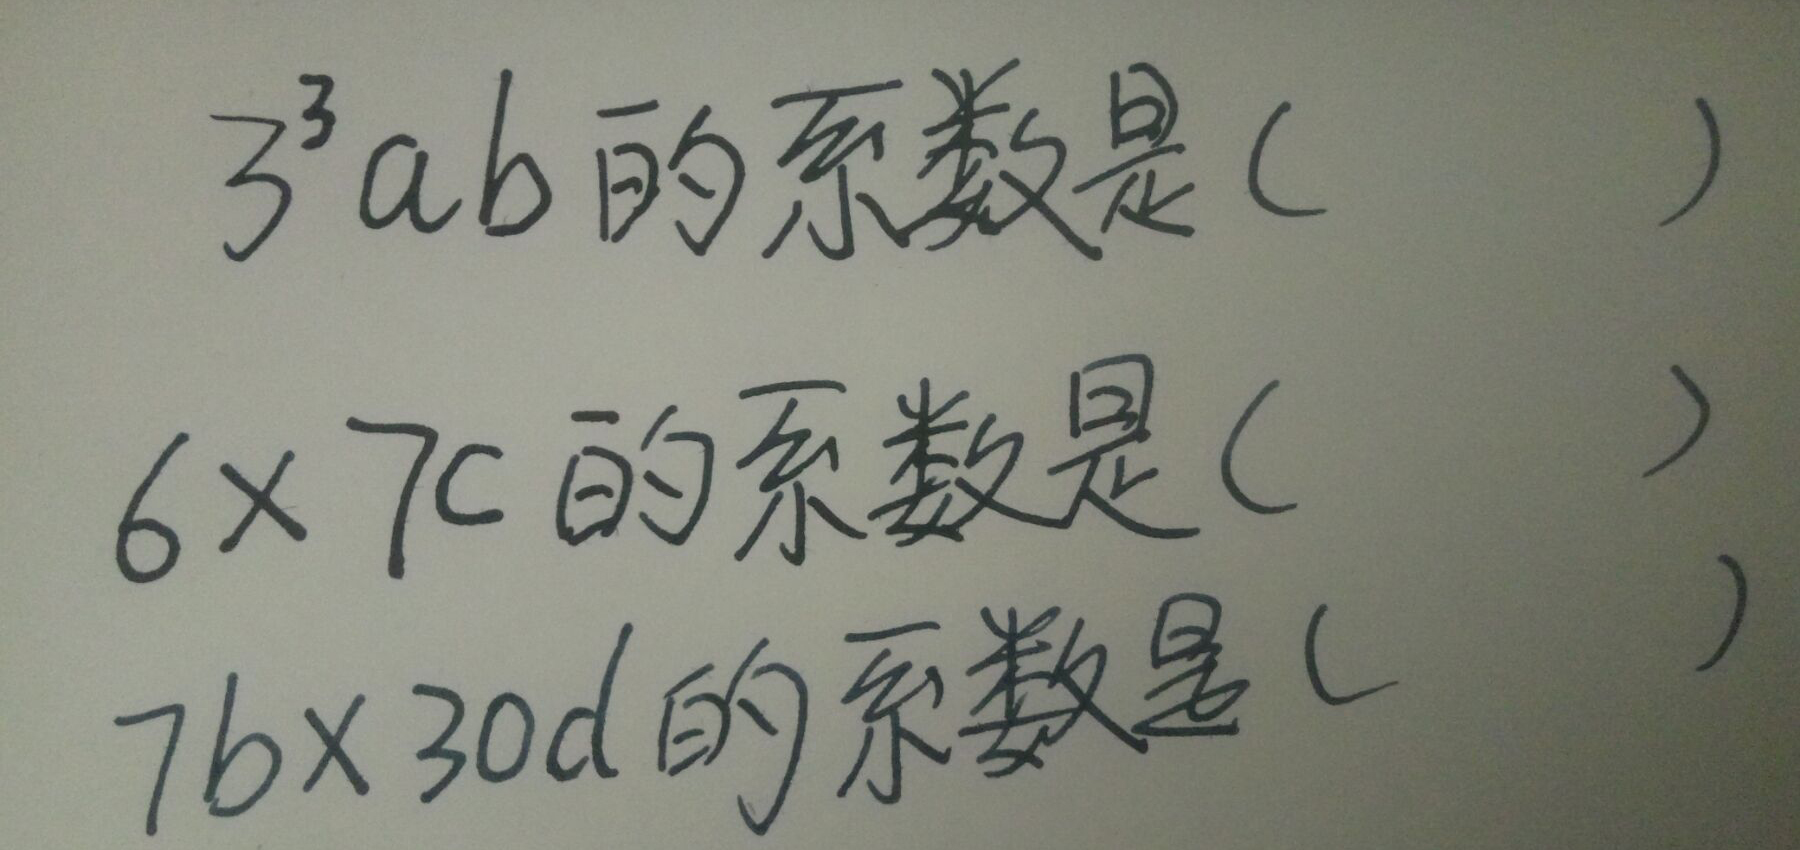 3³ab的系数是(    )
6×7c的系数是(    )
7b×30d的系数是(    )